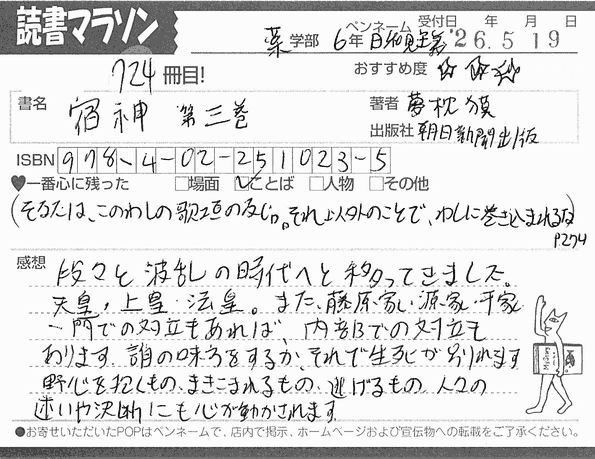 読書マラソン
ペンネーム 受付日 年 月 日
薬 学部 6年 '26.5.19
724冊目! おすすめ度 ☆☆☆
書名 宿神 第三巻
著者 夢枕獏
出版社 朝日新聞出版
ISBN 978-4-02-251023-5
♥一番心に残った □場面 ☑ことば □人物 □その他
(そなたは、このわしの歌の友じゃ。それ以外のことで、わしに巻き込まれるな
P274
感想 段々と波乱の時代へと移ってきました。
天皇・上皇・法皇。また、藤原家・源家・平家
一門での対立もあれば、内部での対立も
あります。誰の味方をするか、それで生死が別れます
野心を抱くもの、まきこまれるもの、逃げるもの、人々の
迷いや決断にも心が動かされます。
●お寄せいただいたPOPはペンネームで、店内で掲示、ホームページおよび宣伝物への転載をご了承ください。